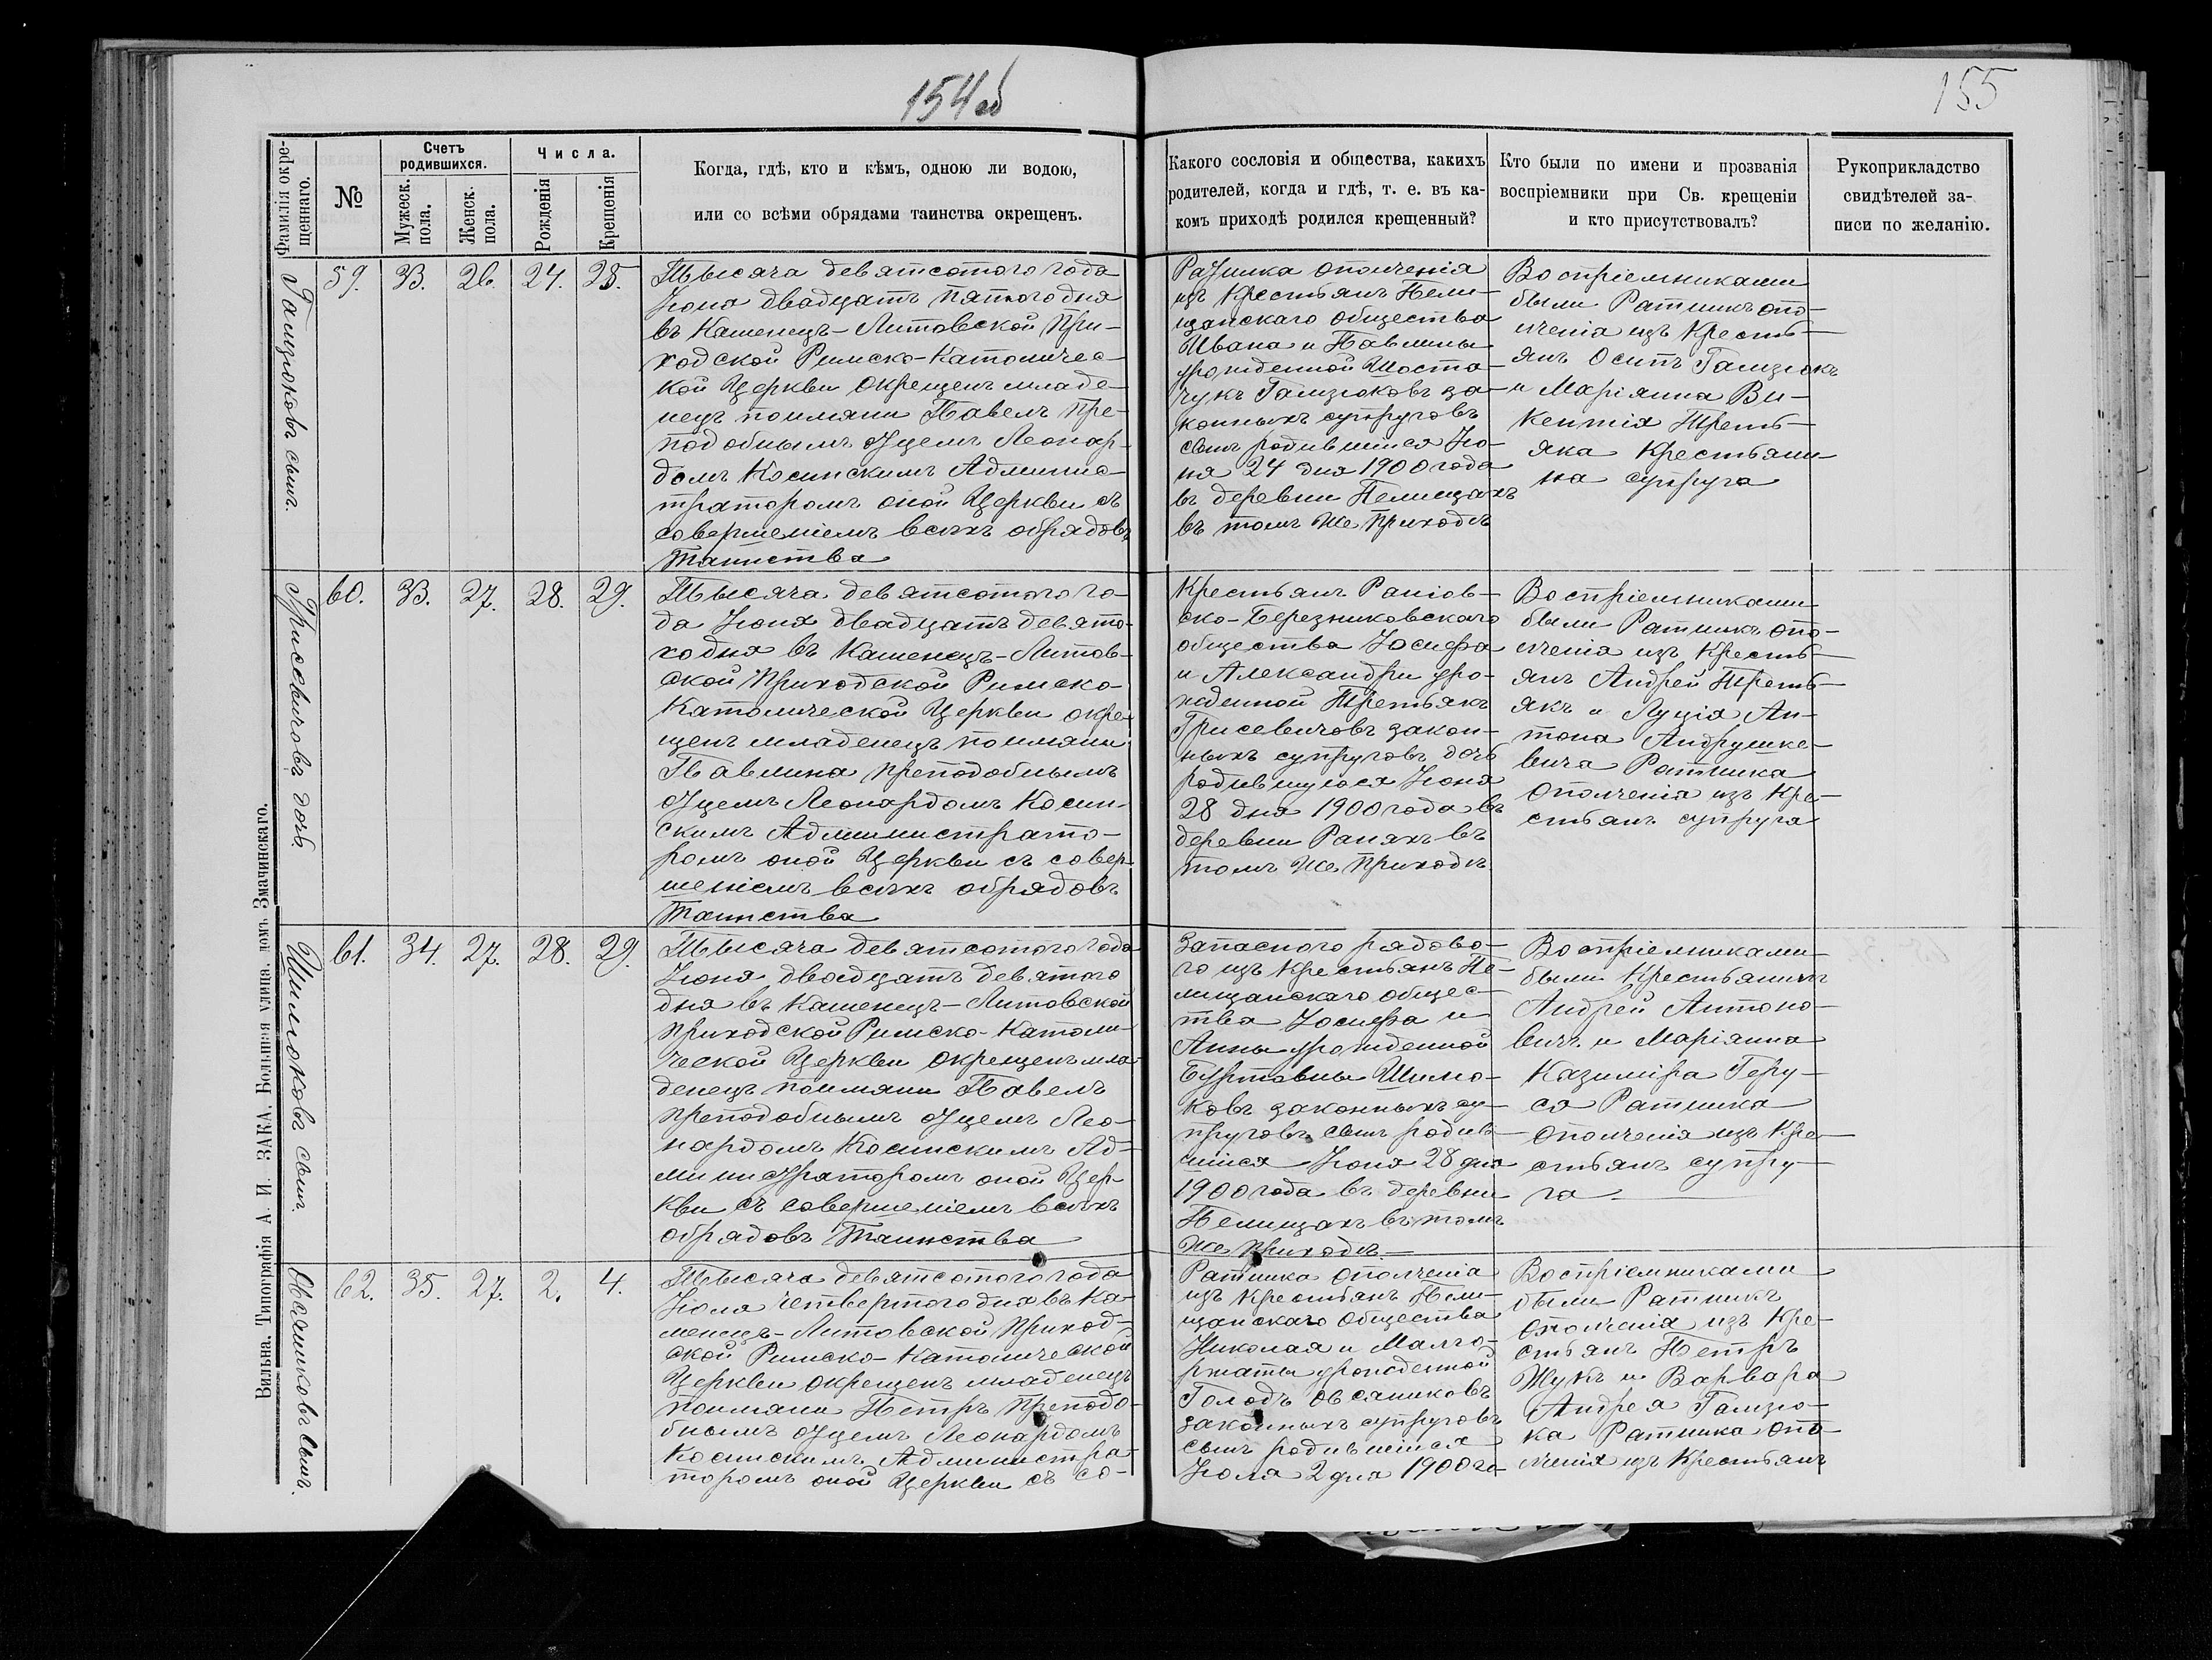 154 об
155
Фамилія окре-
щеннаго.
№
Счетъ
родившихся.
Мужеск.
пола.
Женск.
пола.
Числа.
Рожденія
Крещенія
Когда, гдѣ, кто и кѣмъ, одною ли водою,
или со всѣми обрядами таинства окрещенъ.
Какого сословія и общества, какихъ
родителей, когда и гдѣ, т. е. въ ка-
комъ приходѣ родился крещенный?
Кто были по имени и прозванія
воспріемники при Св. крещеніи
и кто присутствовалъ?
Рукоприкладство
свидѣтелей за-
писи по желанію.
Гамзюковъ сынъ.
59. 33. 26. 24. 25.
Тысяча девятсотого года
Іюня двадцать пятого дня
въ Каменецъ-Литовской При-
ходской Римско-Католичес-
кой Церкви окрещенъ младе-
нецъ поимяни Павелъ Пре-
подобнымъ Отцемъ Леонар-
домъ Косинскимъ Админис-
траторомъ оной Церкви съ
совершеніемъ всѣхъ обрядовъ
Таинства
Ратника ополченія
изъ Крестьянъ Пели-
щанскаго общества
Ивана и Павлины
урожденной Шоста-
чукъ Гамзюковъ за-
конныхъ супруговъ
сынъ родившійся Ію-
ня 24 дня 1900 года
въ деревни Пелищахъ
въ томъ же приходѣ
Воспріемниками
были Ратникъ опо-
лченія изъ Кресть-
янъ Осипъ Гамзюкъ
и Маріянна Ви-
кентія Треть-
яка Крестьяни-
на супруга
Грисевичовъ дочь.
60. 33. 27. 28. 29.
Тысяча девятсотого го-
да Іюня двадцать девято-
го дня въ Каменецъ-Литов-
ской Приходской Римско-
Католической Церкви окре-
щенъ младенецъ поимяни
Павлина преподобнымъ
Отцемъ Леонардомъ Косин-
скимъ Администрато-
ромъ оной Церкви съ совер-
шеніемъ всѣхъ обрядовъ
Таинства
Крестьянъ Раніов-
ско-Березниковскаго
общества Іосифа
и Александри уро-
жденной Третьякъ
Грисевичовъ закон-
ныхъ супруговъ дочь
родившуюся Іюня
28 дня 1900 года въ
деревни Раняхъ въ
томъ же приходѣ
Воспріемниками
были Ратникъ опо-
лченія изъ Кресть-
янъ Андрей Треть-
якъ и Луція Ан-
тона Андрушке-
вича Ратника
ополченія изъ Кре-
стьянъ супруга
Шилюковъ сынъ.
61. 34. 27. 28. 29.
Тысяча девятсотого года
Іюня двадцать девятого
дня въ Каменецъ-Литовской
Приходской Римско-Католи-
ческой Церкви окрещенъ мла-
денецъ поимяни Павелъ
преподобнымъ Отцемъ Лео-
нардомъ Косинскимъ Ад-
министраторомъ оной Цер-
кви съ совершеніемъ всѣхъ
обрядовъ Таинства
Запасного рядово-
го изъ Крестьянъ Пе-
лищанскаго общес-
тва Іосифа и
Анны урожденной
Буртовны Шилю-
ковъ законныхъ су-
пруговъ сынъ родив-
шійся Іюня 28 дня
1900 года въ деревни
Пелищахъ въ томъ
же приходѣ.
Воспріемниками
были Крестьянинъ
Андрей Антоно-
вичъ и Маріянна
Казиміра Геру-
ся Ратника
ополченія изъ Кре-
стьянъ супру-
га
Овсяниковъ сынъ.
62. 35. 27. 2. 4.
Тысяча девятсотого года
Іюля четвертого дня въ Ка-
менецъ-Литовской Приход-
ской Римско-Католической
Церкви окрещенъ младенецъ
поимяни Петръ Преподо-
бнымъ Отцемъ Леонардомъ
Косинскимъ Администра-
торомъ оной Церкви съ со-
Ратника ополченія
изъ Крестьянъ Пели-
щанскаго общества
Николая и Малго-
ржаты урожденной
Голодъ Овсяниковъ
законныхъ супруговъ
сынъ родившійся
Іюля 2 дня 1900 го-
Воспріемниками
были Ратникъ
ополченія изъ Кре-
стьянъ Петръ
Жукъ и Варвара
Андрея Гамзю-
ка Ратника опо-
лченія изъ Крестьянъ
Вильна. Типографія А. И. ЗАКА, Большая улица, домъ Змачинскаго.